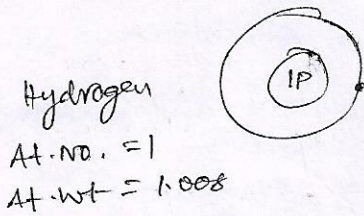 1P
Hydrogen
At. No. = 1
At. Wt = 1.008